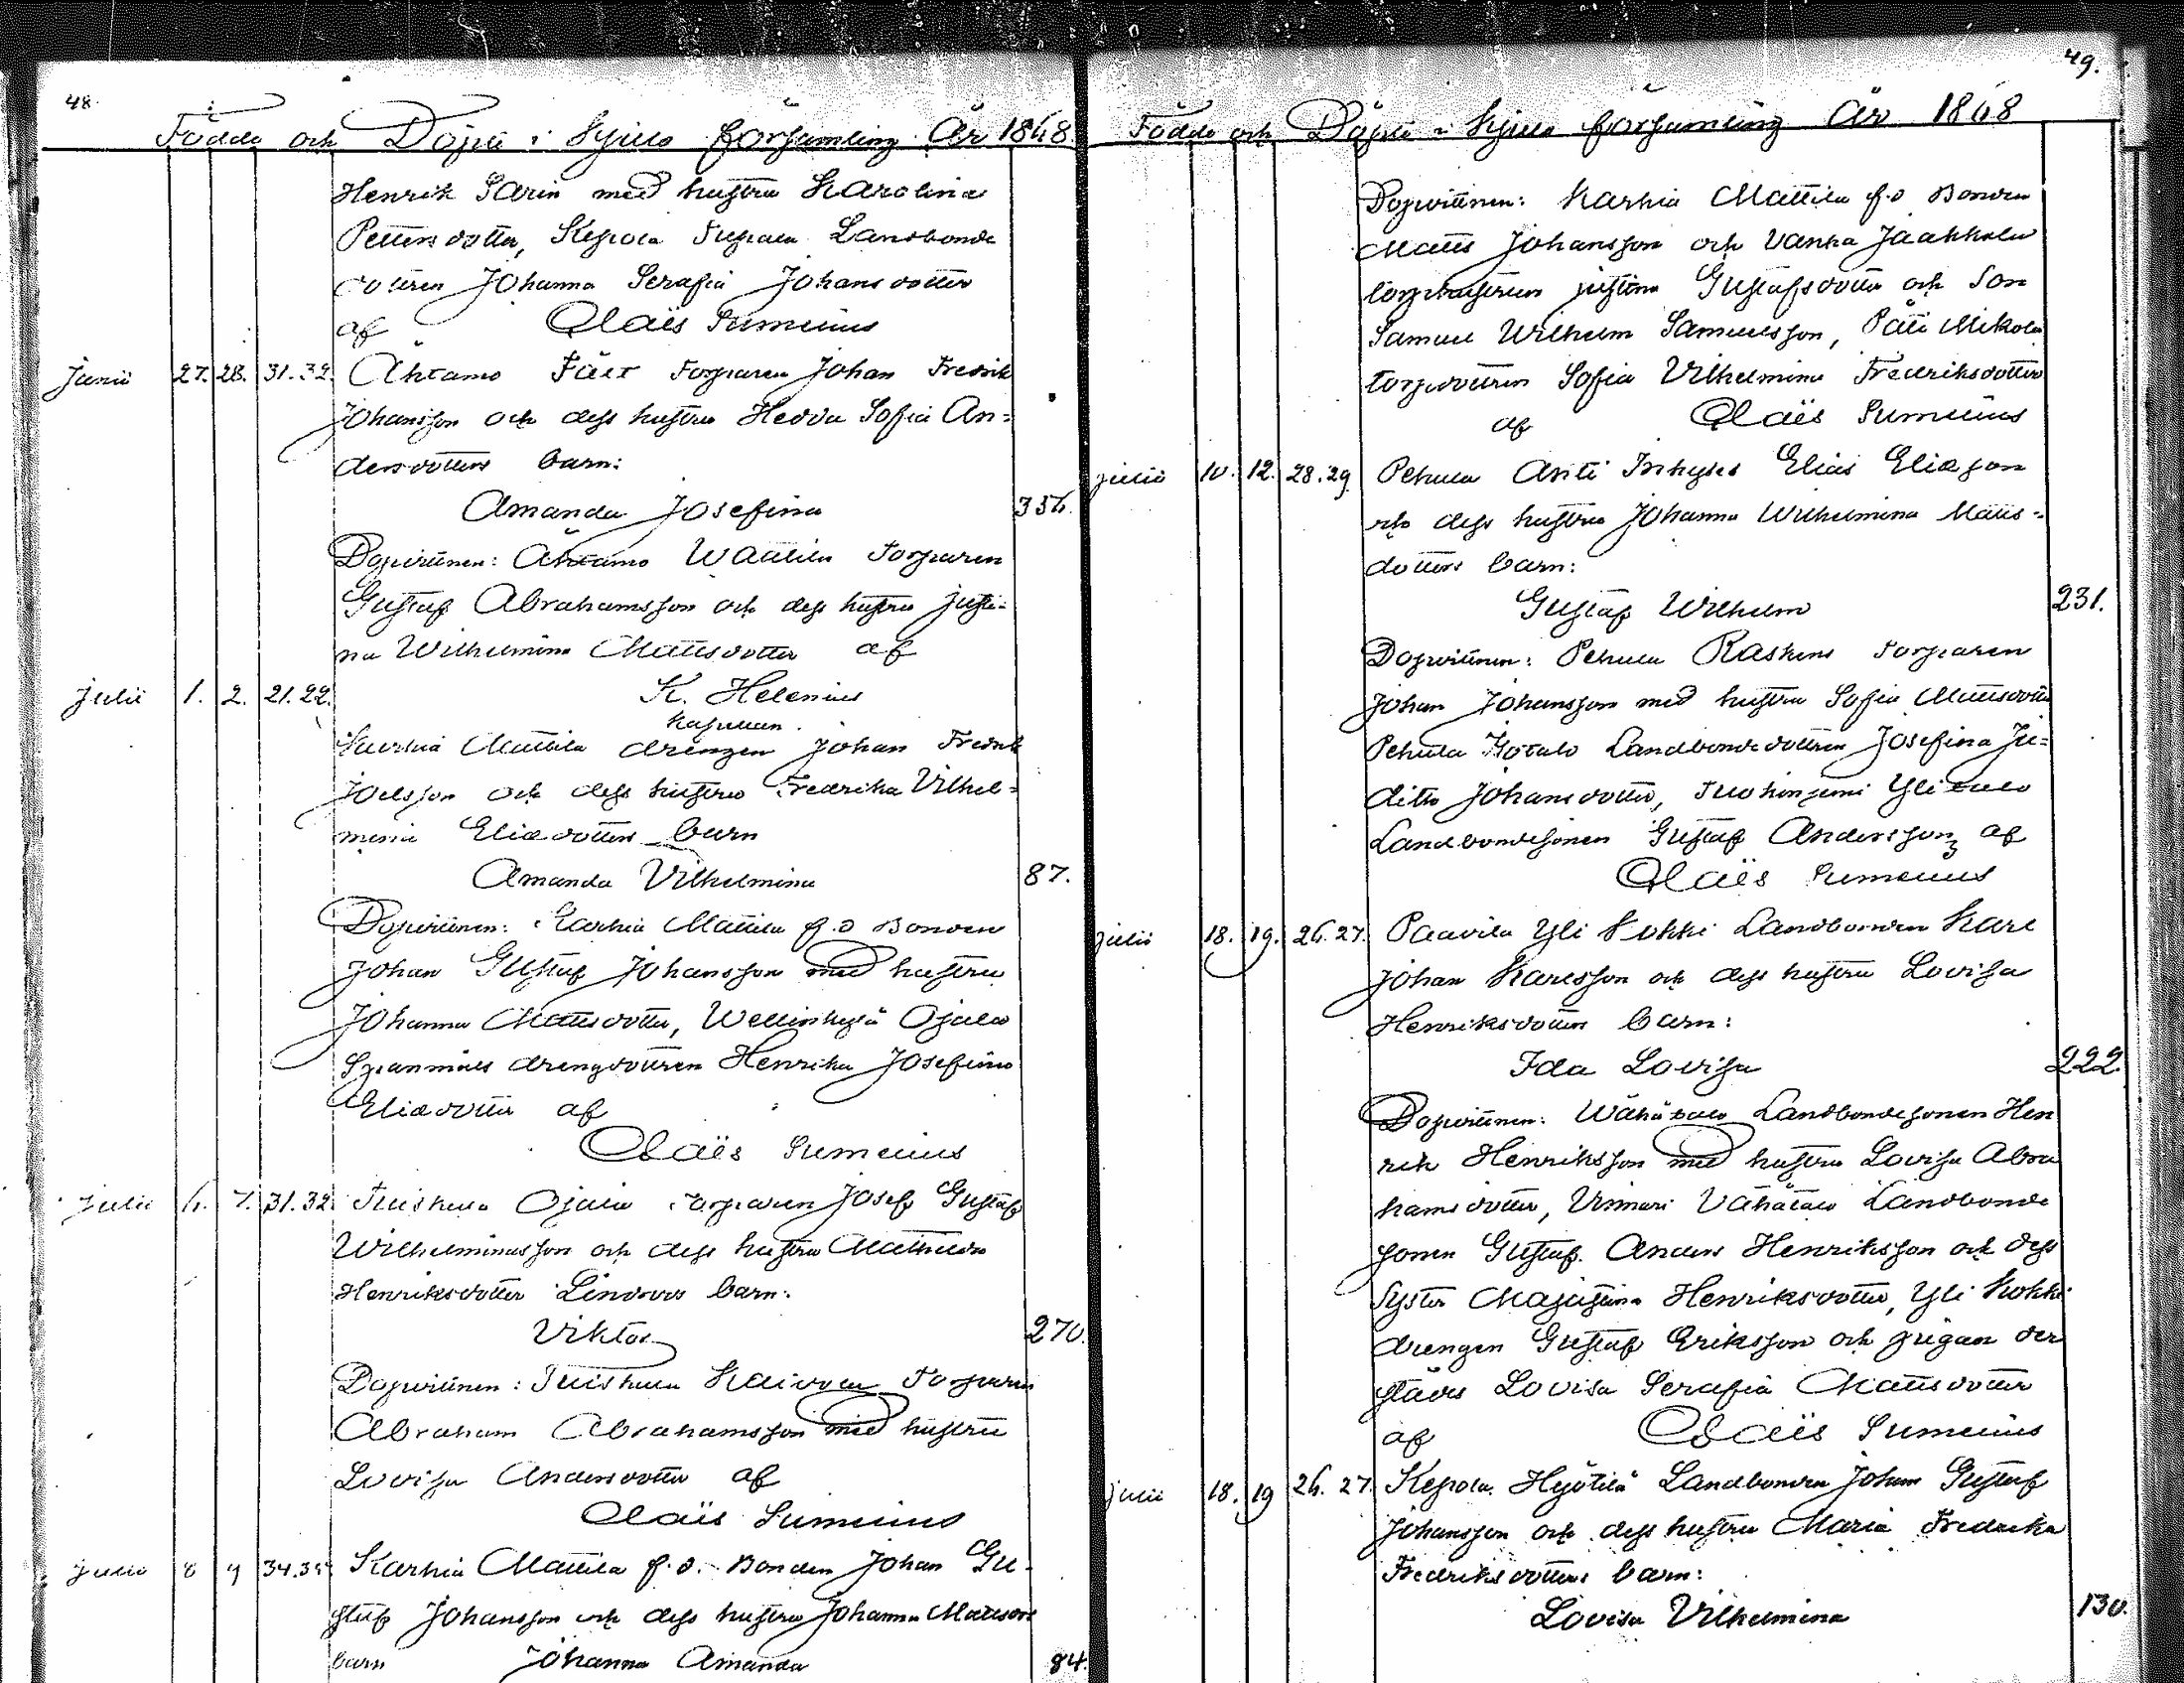 48.
Födde och Döpte i Kjulo församling År 1868
Henrik Sarin med hustru Karolina
Petters dotter, Kepola Landbonde
dottren Johanna Serafia Johans dotter
af Claës Sumelius
Junii 27. 28. 31.32. Ahtamo Fält Torparen Johan Fredrik
Johansson och dess hustru Hedda Sofia An=
dersdotters barn:
Amanda Josefina
Dopvittnen: Ahtamo Wättilä Torparen
Gustaf Abrahamsson och dess hustru Justi=
na Wilhelmina Mattsdotter af
Julii 1. 2. 21.22. K. Helenius
Kapellan.
Karhia Mattila drengen Johan Fredrik
Joelsson och dess hustru Fredrika Vilhel=
mina Eliædotters barn
Amanda Vilhelmina 87.
Dopvittnen: Karhia Mattila f.d Bonden
Johan Gustaf Johansson med hustru
Johanna Mattsdotter, Wellinkylä Ojala
Spanmåls drengdottren Henrika Josefina
Eliædotter af
Claës Sumelius
Julii 6. 7. 31.32. Tuiskula Ojala Torparen Josef Gustaf
Wilhelminasson och dess hustru Mathilda
Henriksdotter Lindroos barn:
Viktor 270.
Dopvittnen: Tuiskula Kaivola Torparen
Abraham Abrahamsson med hustru
Lovisa Andersdotter af
Claës Sumelius
Julii 8 9 34.35 Karhia Mattila f.d. Bonden Johan Gu=
staf Johansson och dess hustru Johanna Mattsdot
barn Johanna Amanda 84.
49.
Födde och Döpte i Kjulo församling År 1868
Dopvittnen: Karhia Mattila f.d Bonden
Matts Johansson och Vanha Jaakkola
torphustrun Justina Gustafsdotter och Son
Samuel Wilhelm Samuelsson, Päli Mikola
torpdottren Sofia Vilhelmina Fredriksdotter
af Claës Sumelius
Julii 10. 12. 28.29. Pehula Antti Inhyses Elias Eliæson
och dess hustru Johanna Wilhelmina Matts=
dotters barn:
Gustaf Wilhelm 231.
Dopvittnen: Pehula Raskens Torparen
Johan Johansson med hustru Sofia Mattsdotter
Pehula Isotalo Landbondedottren Josefina Ju=
ditha Johansdotter, Tuohiniemi Ylitalo
Landbondesonen Gustaf Andersson, af
Claës Sumelius
Julii 18. 19. 26.27. Paavila Yli Kokki Landbonden Karl
Johan Karlsson och dess hustru Lovisa
Henriksdotters barn:
Ida Lovisa 222.
Dopvittnen: Wähätalo Landbondesonen Hen
rik Henriksson med hustru Lovisa Abra
hams dotter, Vinnari Vähätalo Landbonde
sonen Gustaf Anders Henriksson och dess
Syster Majastina Henriksdotter, Yli Kokki
drengen Gustaf Eriksson och pigan der
städes Lovisa Serafia Mattsdotter
af Claës Sumelius
Julii 18. 19 26.27. Kepola Hyötilä Landbonden Johan Gustaf
Johansson och dess hustru Maria Fredrika
Fredriksdotters barn:
Lovisa Vilhelmina 130.